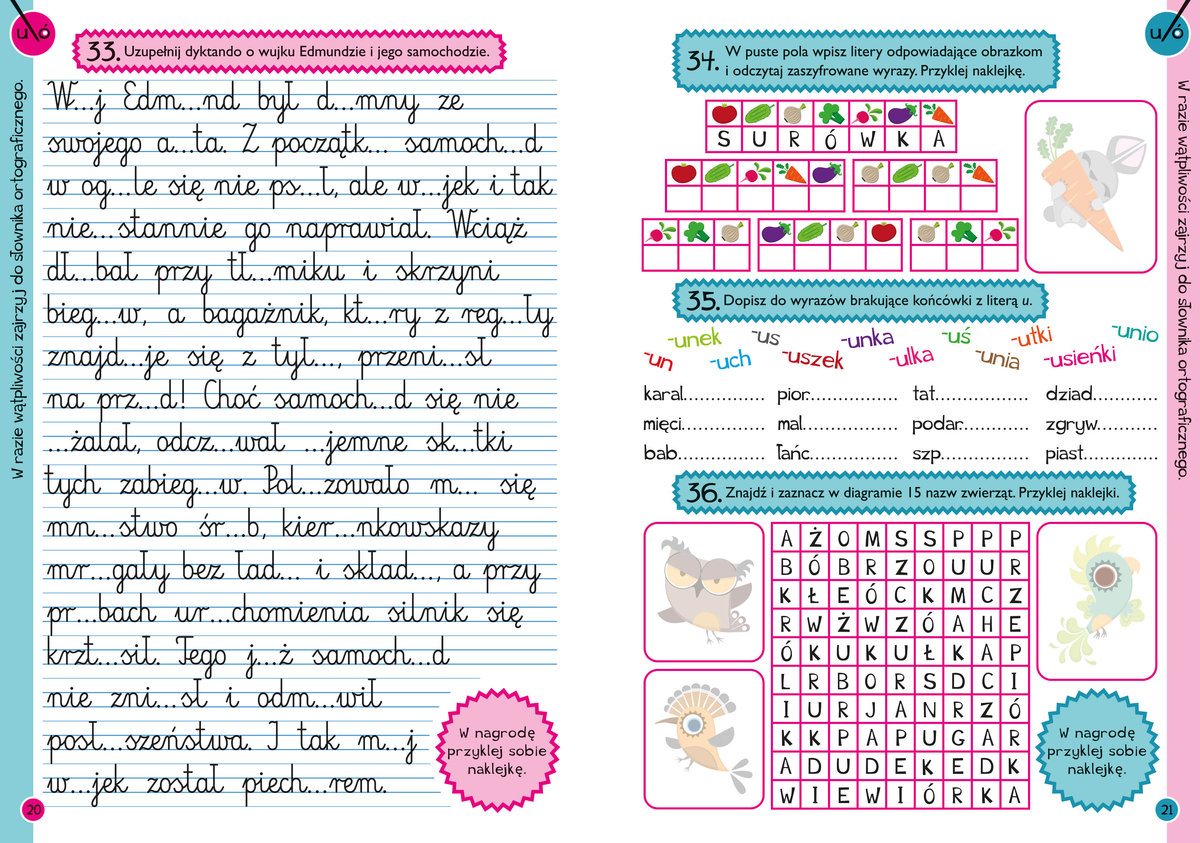 u/ó
33. Uzupełnij dyktando o wujku Edmundzie i jego samochodzie.
W...j Edm...nd był d...mny ze
swojego a...ta. Z początk... samoch...d
w og...le się nie ps...ł, ale w...jek i tak
nie...stannie go naprawiał. Wciąż
dł...bał przy tł...miku i skrzyni
bieg...w, a bagażnik, kt...ry z reg...ły
znajd...je się z tył..., przeni...sł
na prz...d! Choć samoch...d się nie
...żalał, odcz...wał ...jemne sk...tki
tych zabieg...w. Pol...zowało m... się
mn...stwo śr...b, kier...nkowskazy
mr...gały bez ład... i skład..., a przy
pr...bach ur...chomienia silnik się
krzt...sił. Tego j...ż samoch...d
nie zni...sł i odm...wił
posł...szeństwa. I tak m...j
w...jek został piech...rem.
W nagrodę
przyklej sobie
naklejkę.
W razie wątpliwości zajrzyj do słownika ortograficznego.
20
u/ó
34. W puste pola wpisz litery odpowiadające obrazkom
i odczytaj zaszyfrowane wyrazy. Przyklej naklejkę.
S U R Ó W K A
35. Dopisz do wyrazów brakujące końcówki z literą u.
-un -unek -uch -us -uszek -unka -ulka -uś -unia -utki -usieńki -unio
karal............... pior................ tat................ dziad............
mięci............... mal................ podar.............. zgryw............
bab................. łańc............... szp................ piast.............
36. Znajdź i zaznacz w diagramie 15 nazw zwierząt. Przyklej naklejki.
A Ż O M S S P P P
B Ó B R Z O U U R
K Ł E Ó C K M C Z
R W Ż W Z Ó A H E
Ó K U K U Ł K A P
L R B O R S D C I
I U R J A N R Z Ó
K K P A P U G A R
A D U D E K E D K
W I E W I Ó R K A
W nagrodę
przyklej sobie
naklejkę.
W razie wątpliwości zajrzyj do słownika ortograficznego.
21